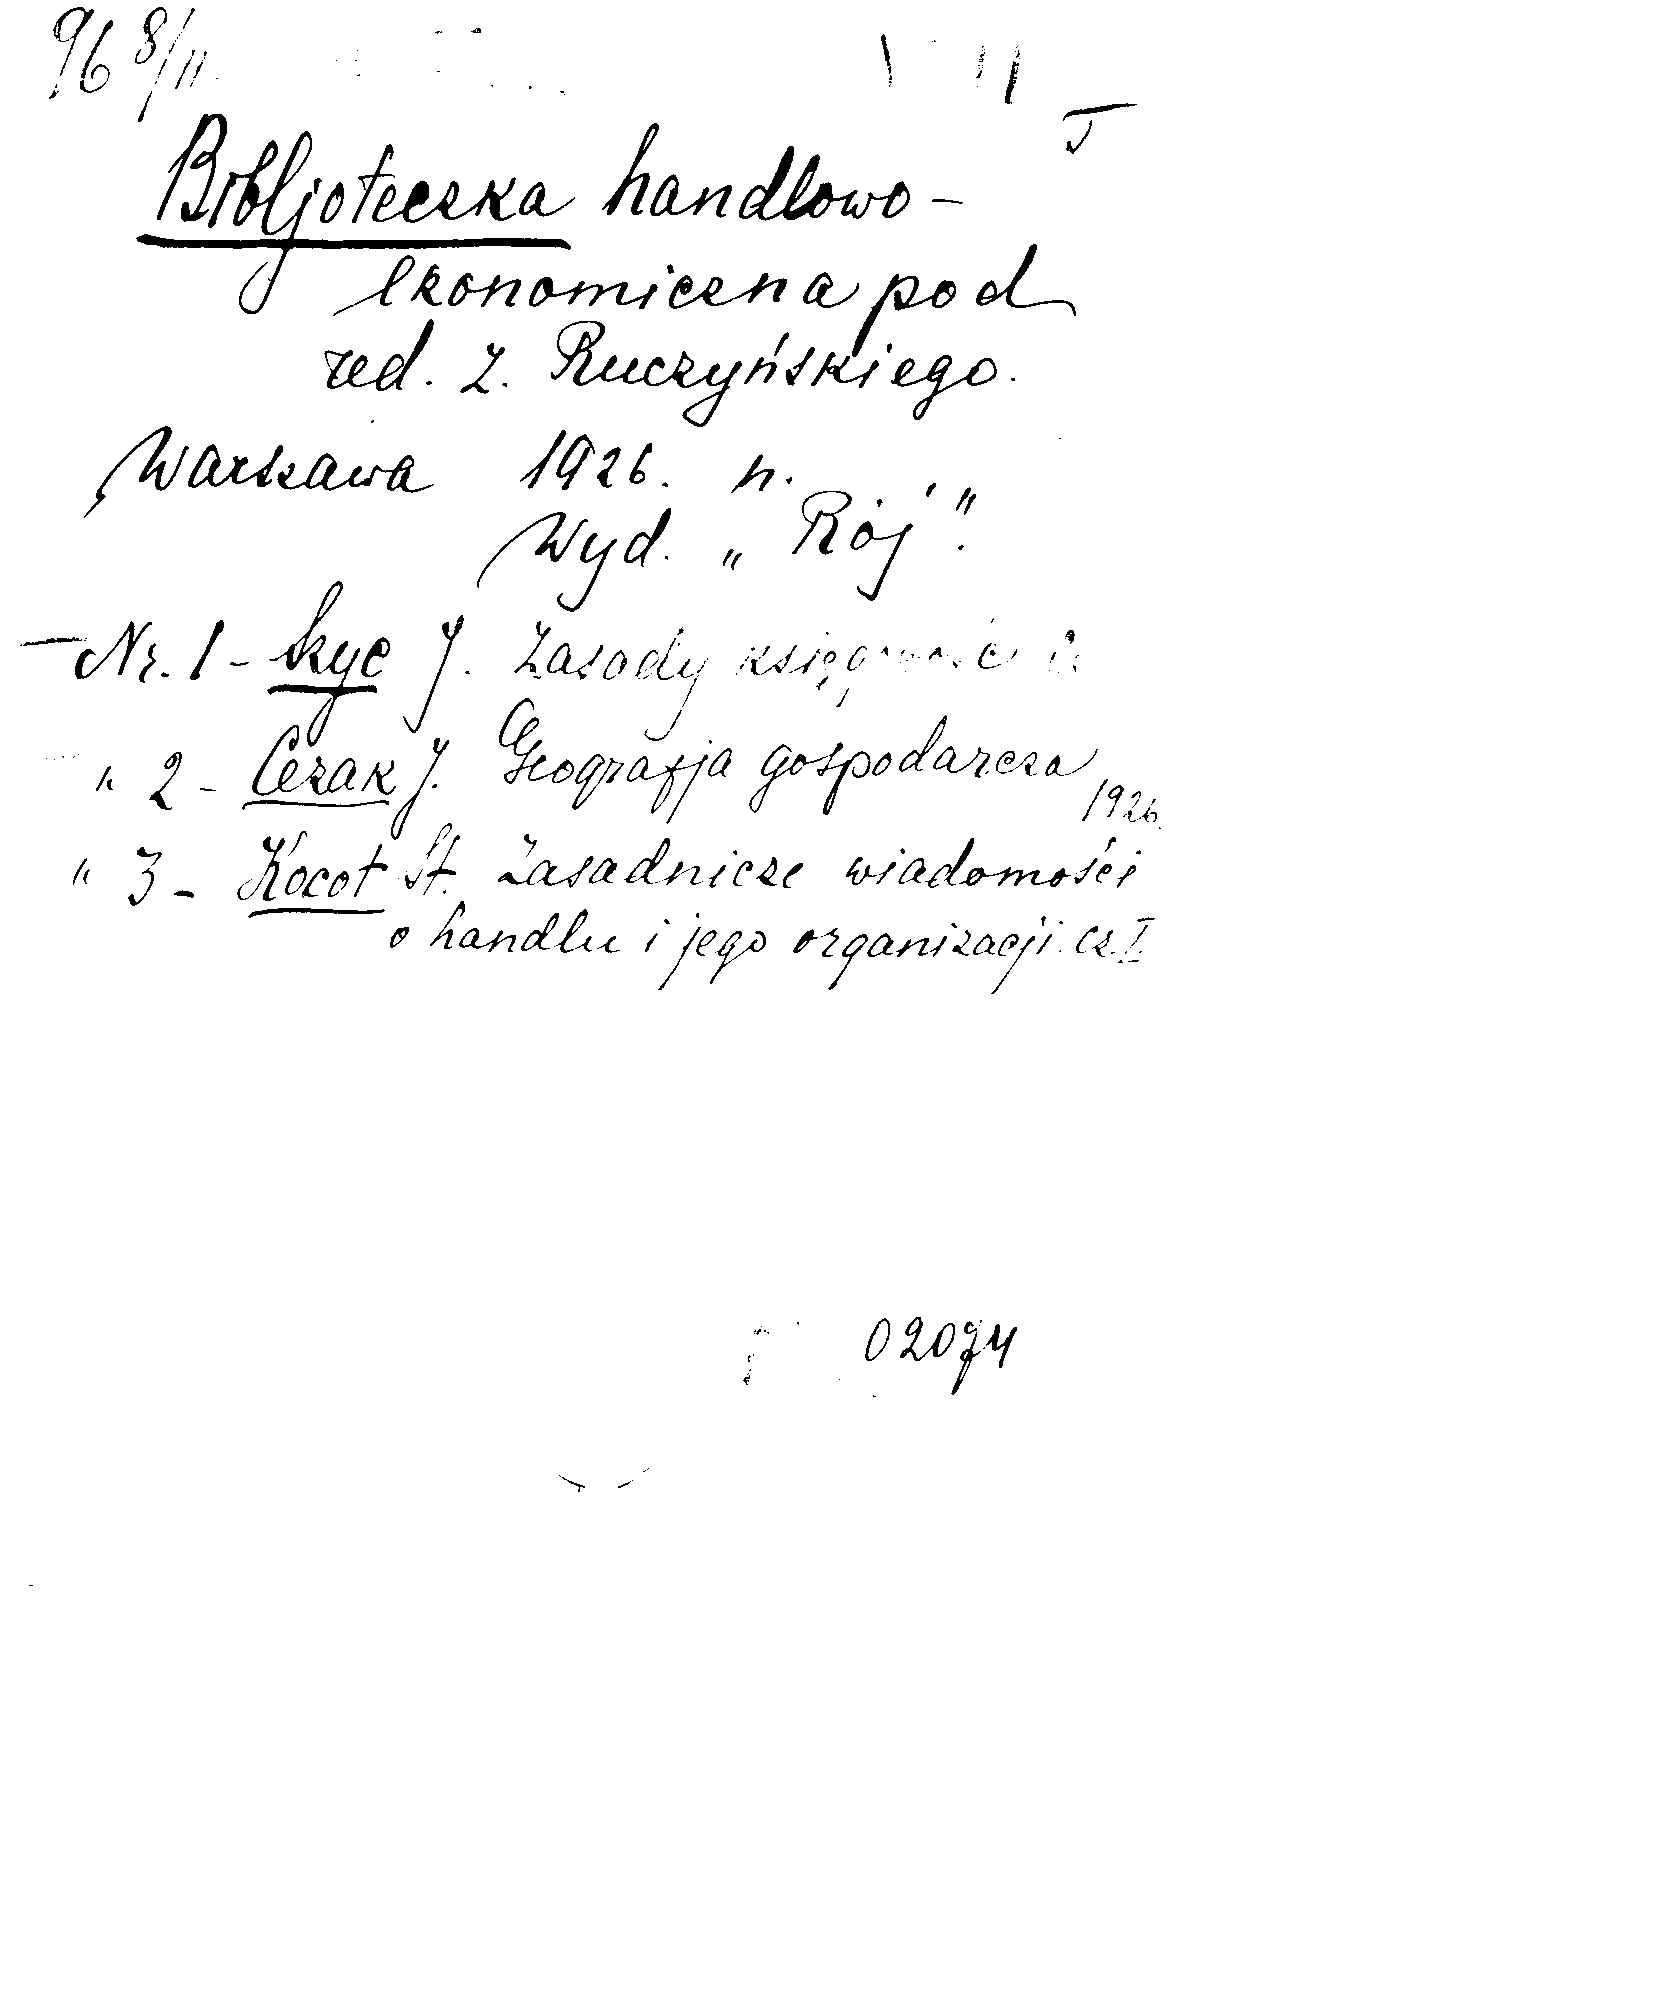 96 8/II
I
Bibljoteczka handlowo-
ekonomiczna pod
red. Z. Ruczyńskiego.
Warszawa 1926. n.
Wyd. „Rój".
Nr. 1 - Szyc J. Zasady
" 2 - Cezak J. Geografja gospodarcza
1926.
" 3 - Kocot St. Zasadnicze wiadomości
o handlu i jego organizacji. Cz. I
02074